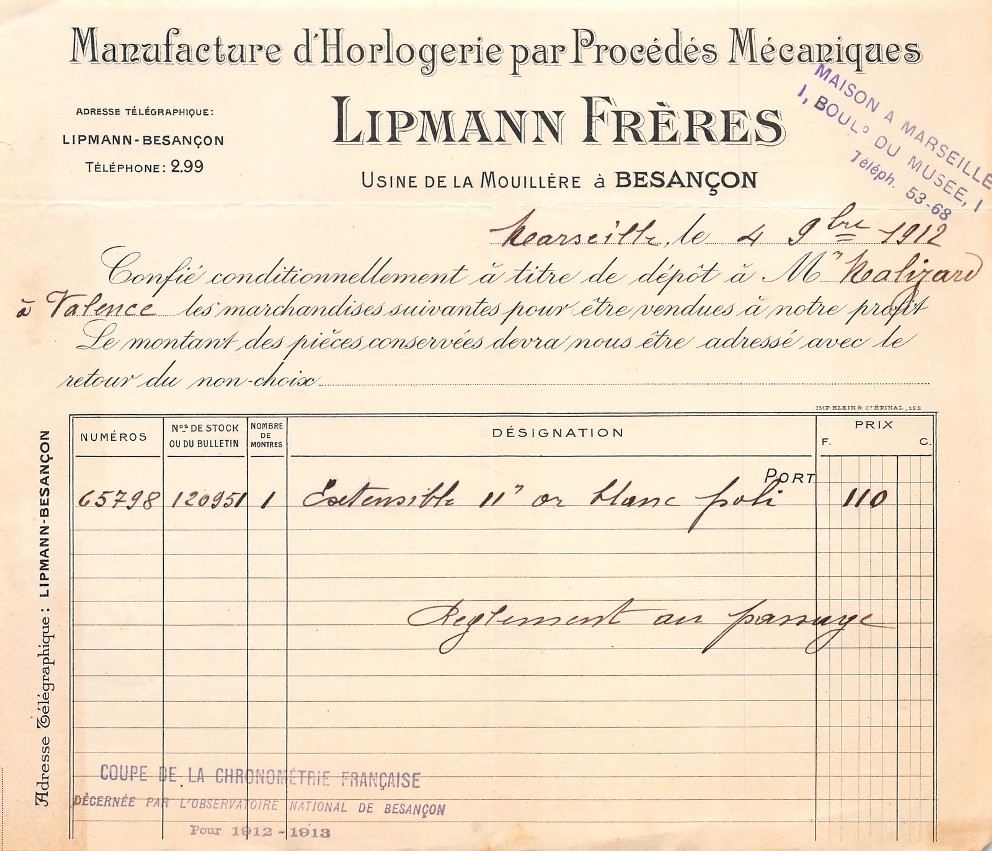 Manufacture d'Horlogerie par Procédés Mécaniques
ADRESSE TÉLÉGRAPHIQUE:
LIPMANN-BESANÇON
TÉLÉPHONE: 2.99
LIPMANN FRÈRES
USINE DE LA MOUILLÈRE à BESANÇON
MAISON A MARSEILLE
1, BOUL.D DU MUSÉE, 1
Téléph. 53-68
Marseille, le 4 9bre 1912
Confié conditionnellement à titre de dépôt à Mr Malizard
à Valence les marchandises suivantes pour être vendues à notre profit
Le montant des pièces conservées devra nous être adressé avec le
retour du non-choix
IMP. KLEIN & Cie ÉPINAL
NUMÉROS
Nos DE STOCK OU DU BULLETIN
NOMBRE DE MONTRES
DÉSIGNATION
PRIX
F. C.
PORT
65798 120951 1 Extensible 11''' or blanc poli 110
Reglement au passage
Adresse Télégraphique: LIPMANN-BESANÇON
COUPE DE LA CHRONOMÉTRIE FRANÇAISE
DÉCERNÉE PAR L'OBSERVATOIRE NATIONAL DE BESANÇON
Pour 1912-1913